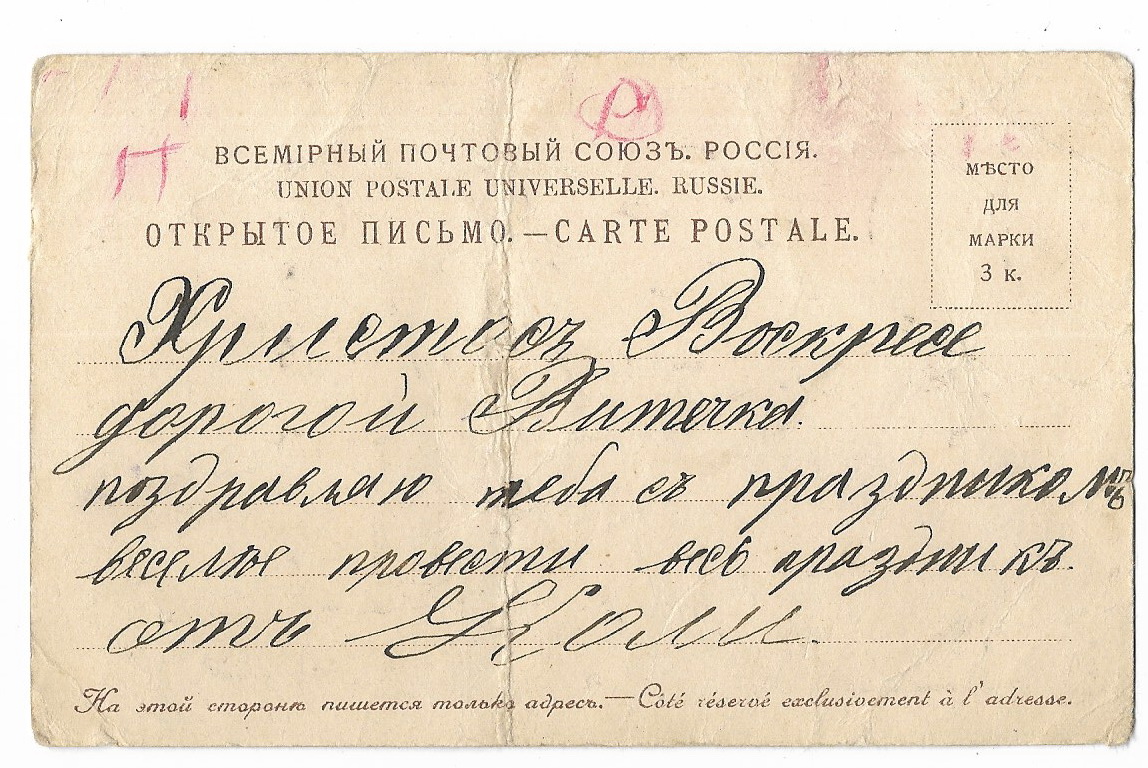 ВСЕМІРНЫЙ ПОЧТОВЫЙ СОЮЗЪ. РОССІЯ.
UNION POSTALE UNIVERSELLE. RUSSIE.
ОТКРЫТОЕ ПИСЬМО.—CARTE POSTALE.
МѢСТО
ДЛЯ
МАРКИ
3 к.
Христосъ Воскресе
дорогой Витечка.
поздравляю тебя съ праздникомъ
веселѣе провести весь праздникъ.
отъ Коли.
На этой сторонѣ пишется только адресъ.—Côté réservé exclusivement à l'adresse.